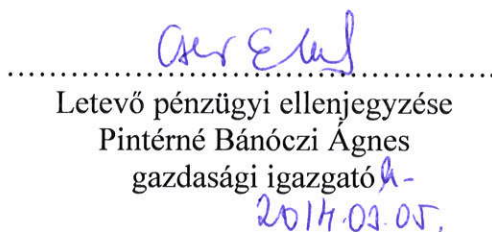 Letevő pénzügyi ellenjegyzése
Pintérné Bánóczi Ágnes
gazdasági igazgató h-